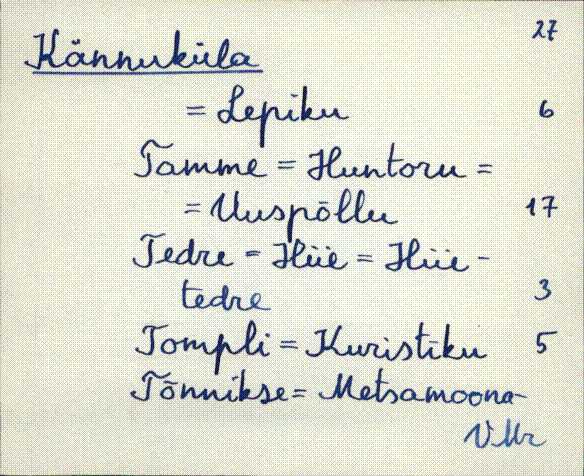 27
Kännuküla
= Lepiku 6
Tamme = Huntoru =
= Uuspõllu 17
Tedre = Hiie = Hiie-
tedre 3
Tompli = Kuristiku 5
Tõnnikse = Metsamoona-
VMr